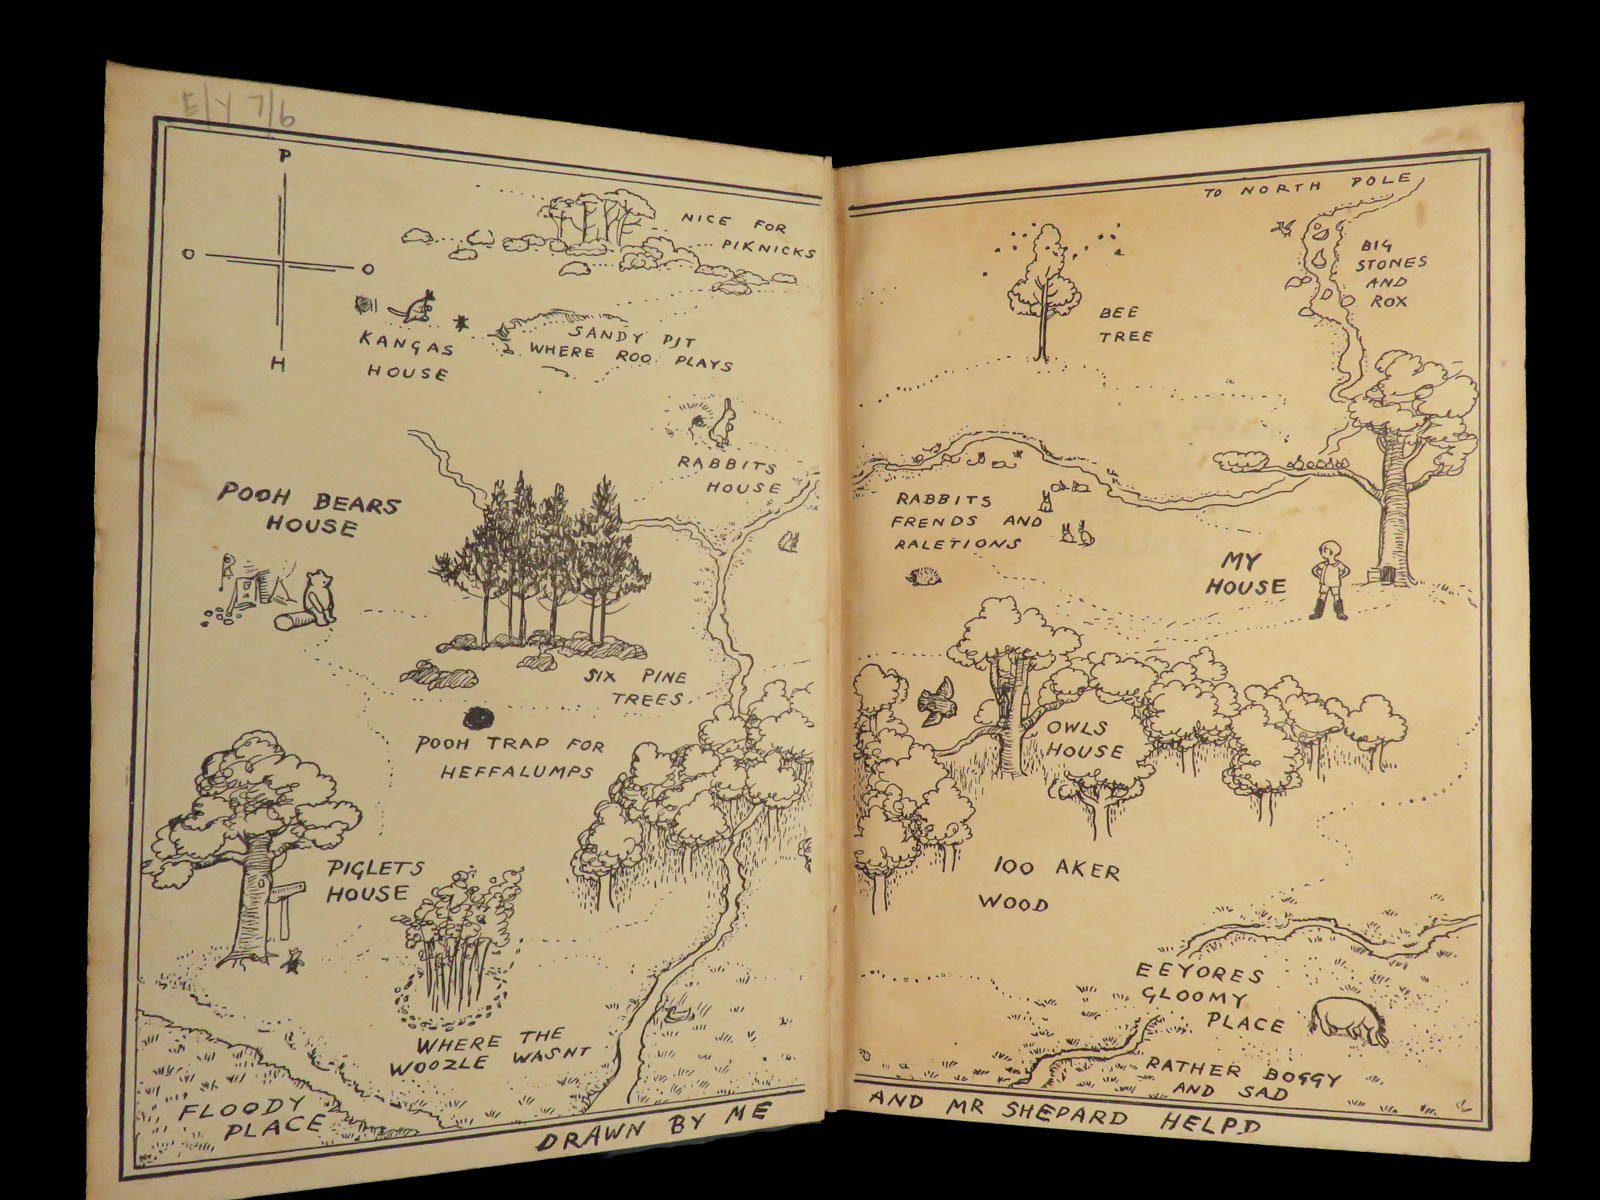 E/Y 7/6
P
O O
H
NICE FOR
PIKNICKS
KANGAS
HOUSE
SANDY PIT
WHERE ROO PLAYS
RABBITS
HOUSE
POOH BEARS
HOUSE
SIX PINE
TREES
POOH TRAP FOR
HEFFALUMPS
PIGLETS
HOUSE
WHERE THE
WOOZLE WASNT
FLOODY
PLACE
DRAWN BY ME
TO NORTH POLE
BIG
STONES
AND
ROX
BEE
TREE
RABBITS
FRENDS AND
RALETIONS
MY
HOUSE
OWLS
HOUSE
100 AKER
WOOD
EEYORES
GLOOMY
PLACE
RATHER BOGGY
AND SAD
AND MR SHEPARD HELPD